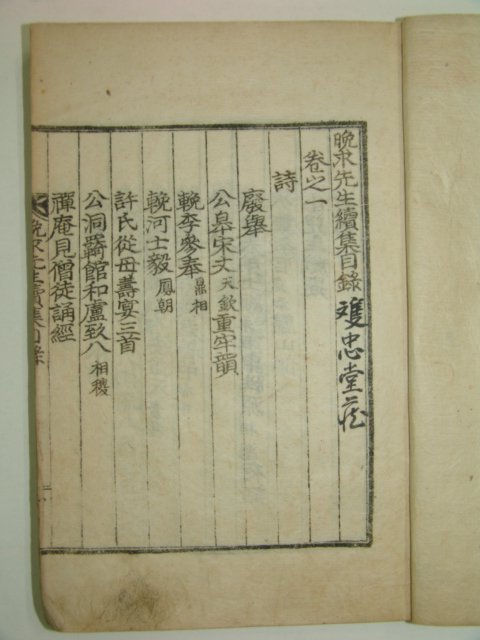 晩求先生續集目錄 雙忠堂藏
卷之一
詩
廢舉
公皋宋丈天欽重牢韻
輓李參奉鼎相
輓河士毅鳳朝
許氏從母壽宴三首
公洞羇館和盧致八相稷
禪庵見僧徒誦經
晩求先生續集目錄